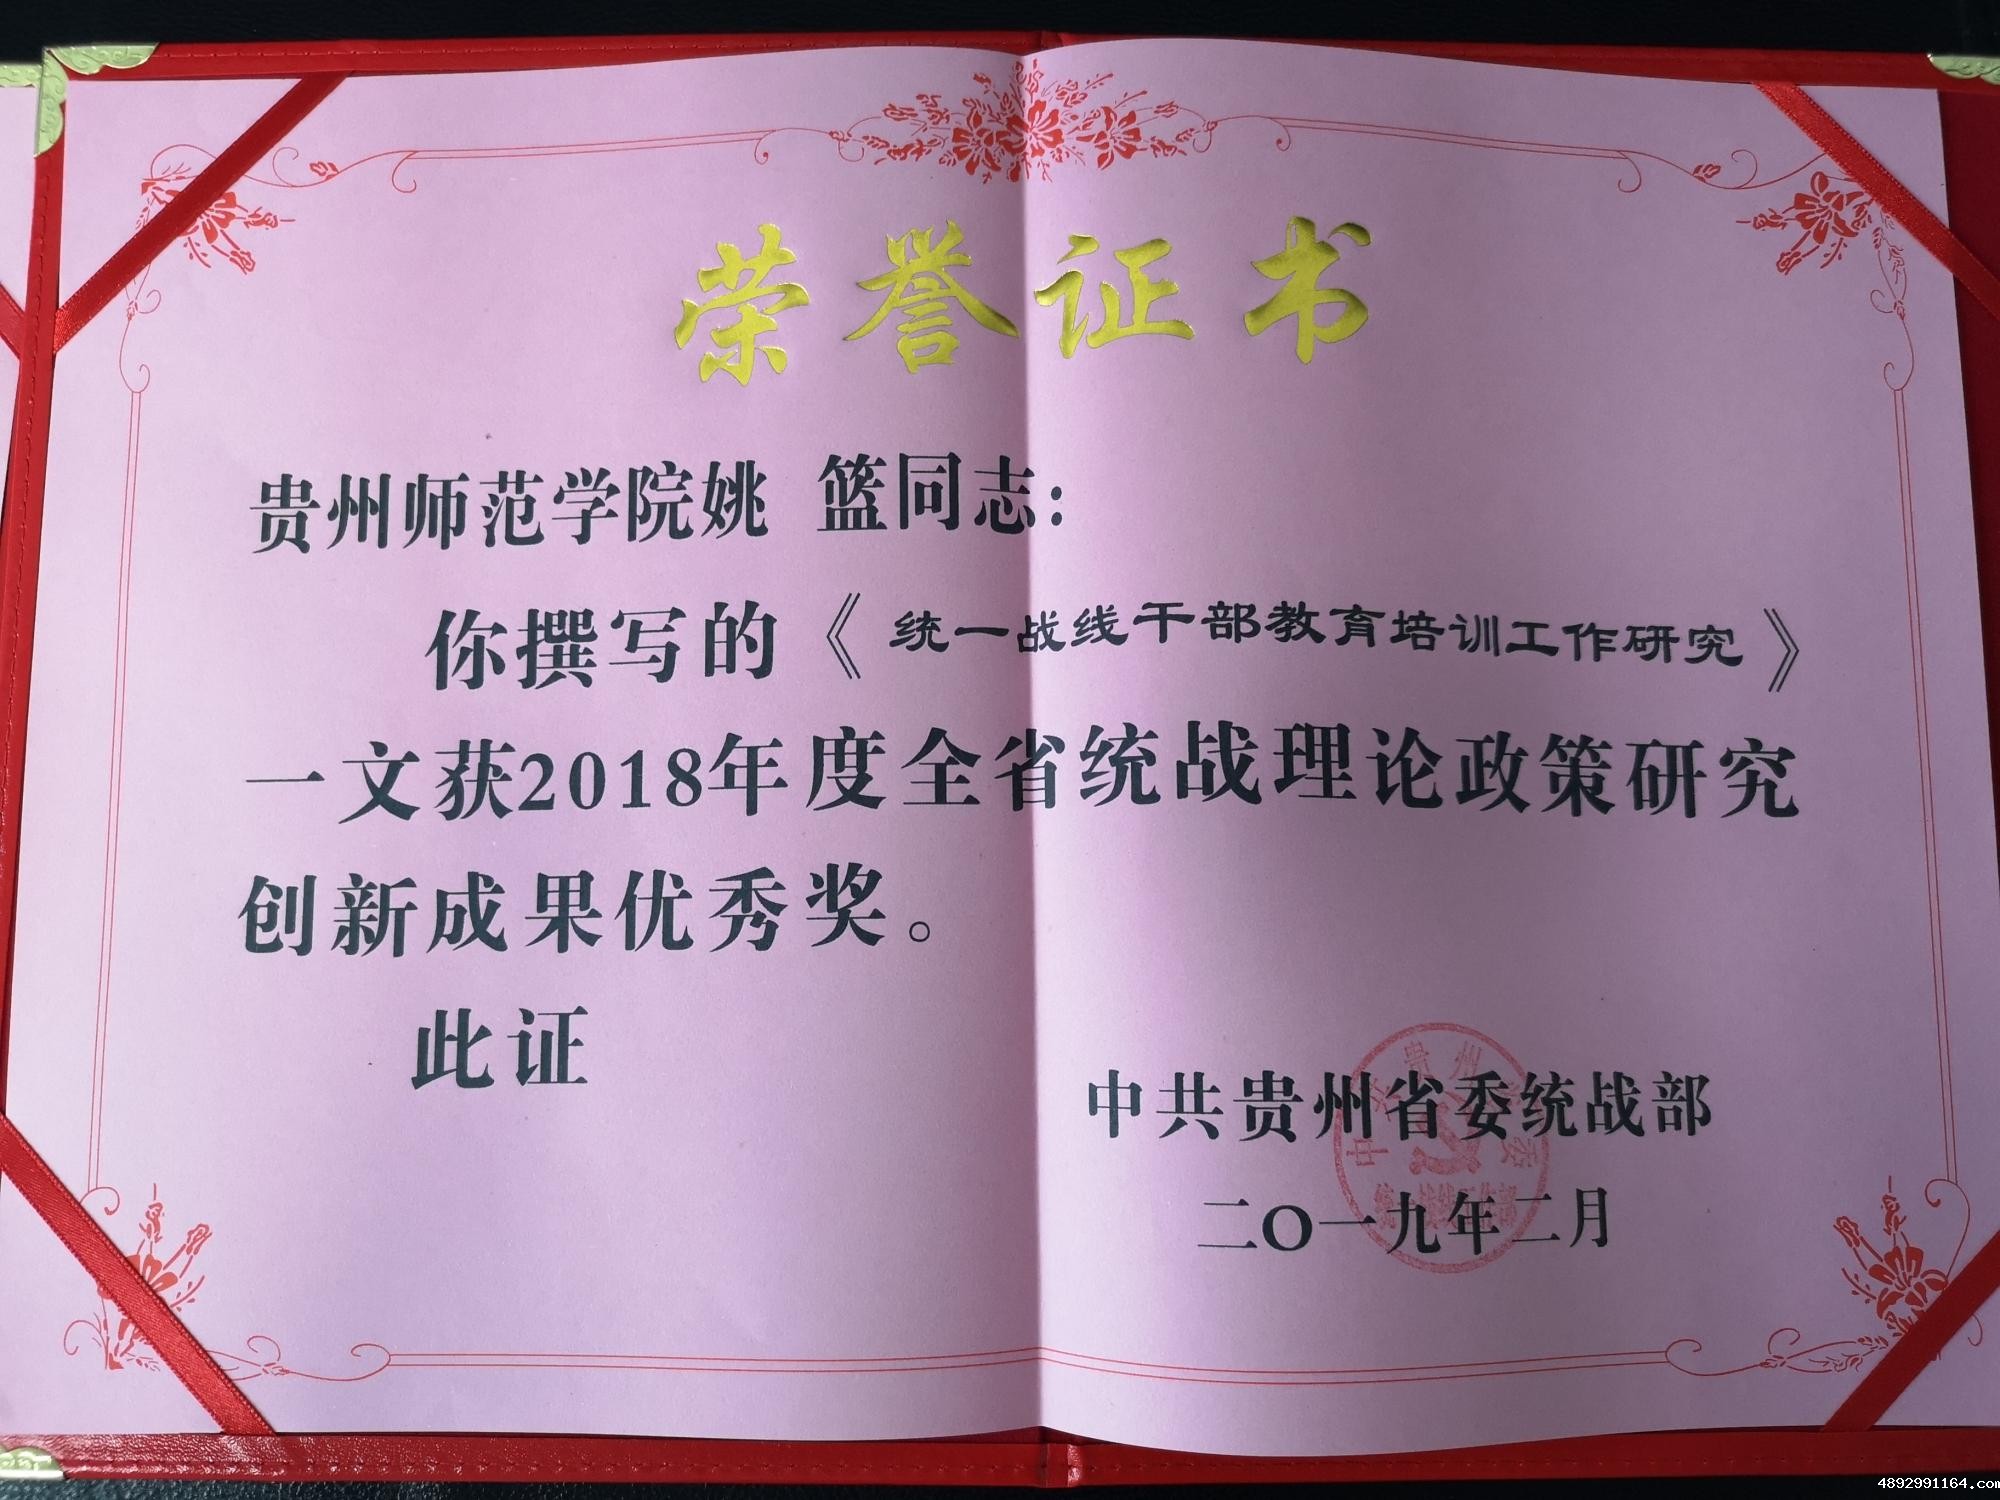 荣誉证书
贵州师范学院姚 篮同志：
你撰写的《统一战线干部教育培训工作研究》
一文获2018年度全省统战理论政策研究
创新成果优秀奖。
此证
中共贵州省委统战部
二〇一九年二月
4892991164.com